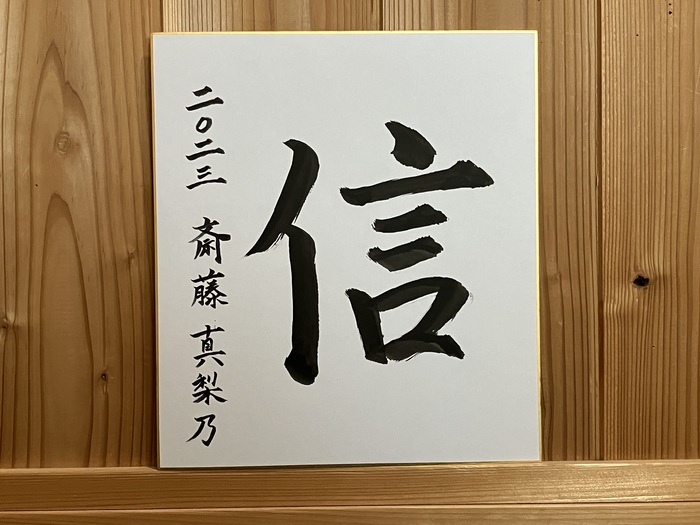 信
二〇二三 斎藤 真梨乃